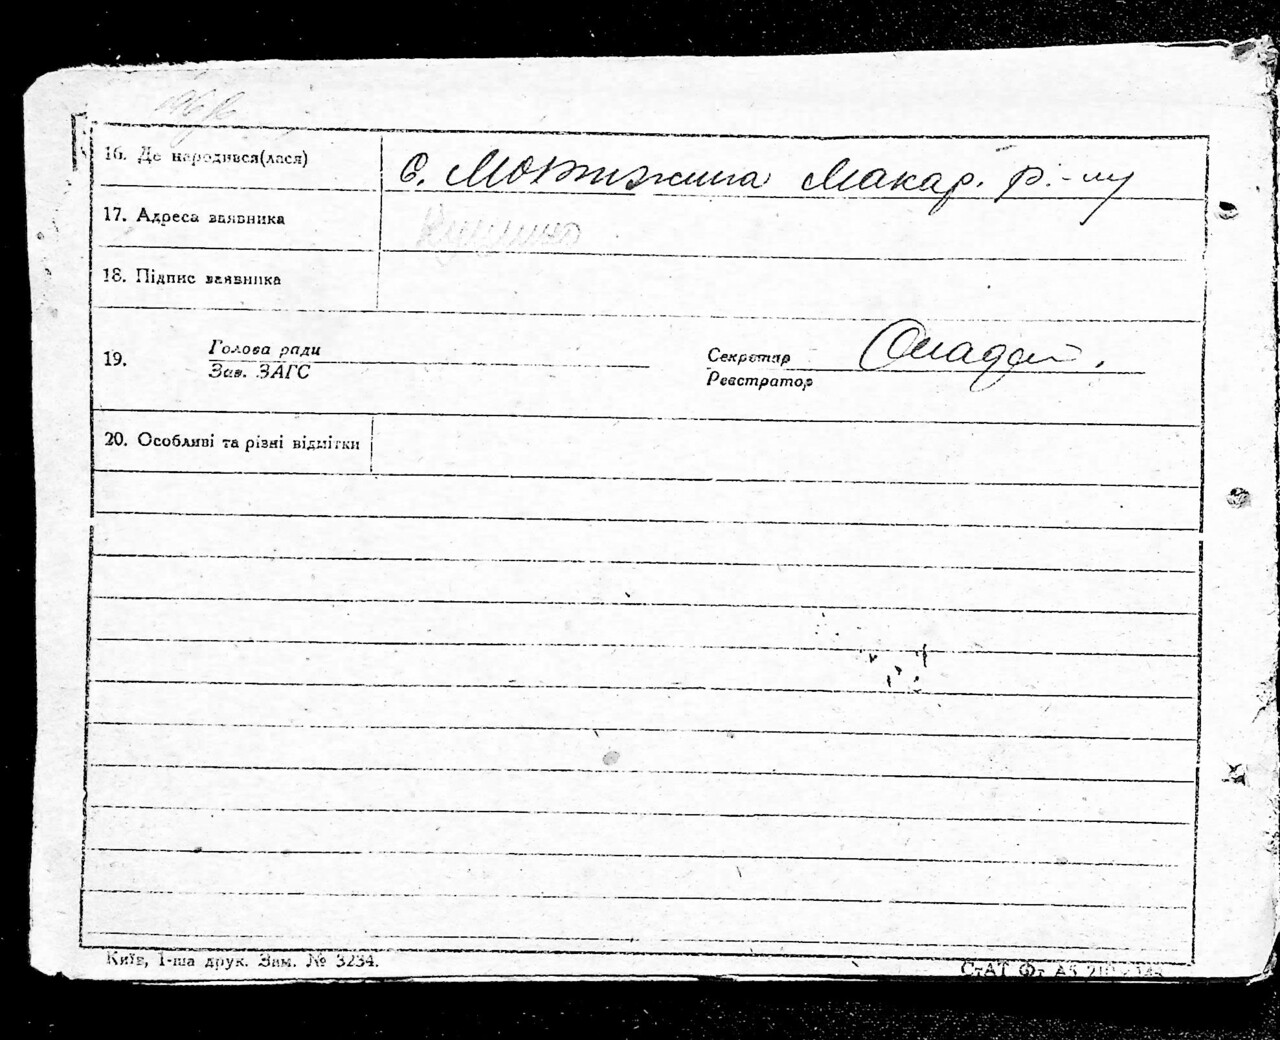 16. Де народився(лася) с. Мотижина Макар. р.-ну
17. Адреса заявника
18. Підпис заявника
19. Голова ради
Зав. ЗАГС
Секретар
Реєстратор
20. Особливі та різні відмітки
Київ, 1-ша друк. Зам. № 3234.
СтАТ Фт А5 210